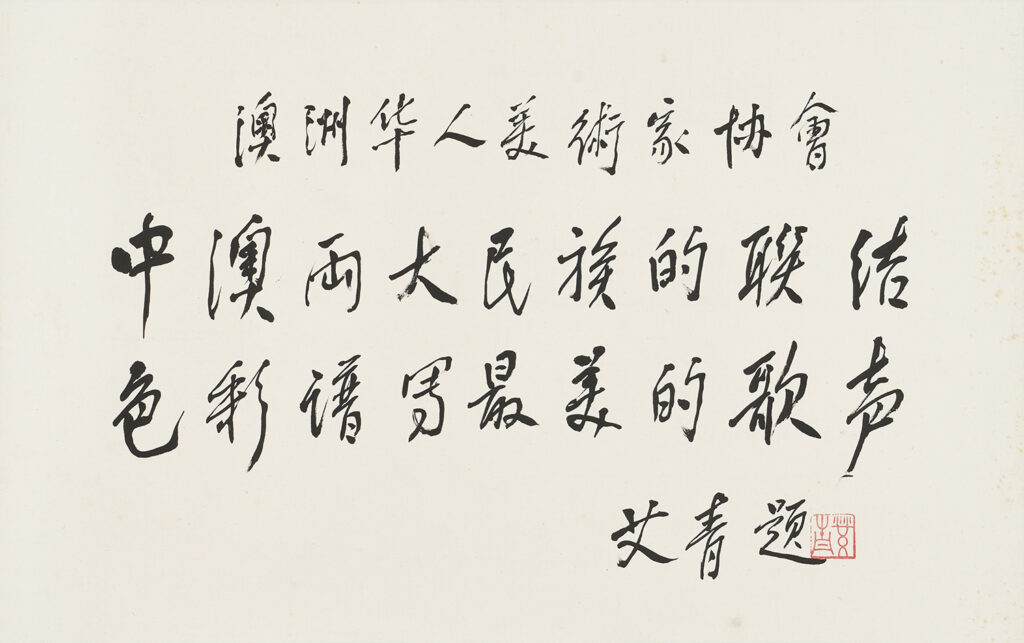 澳洲华人美術家协會
中澳両大民族的联结
色彩谱写最美的歌声
艾青题
艾青